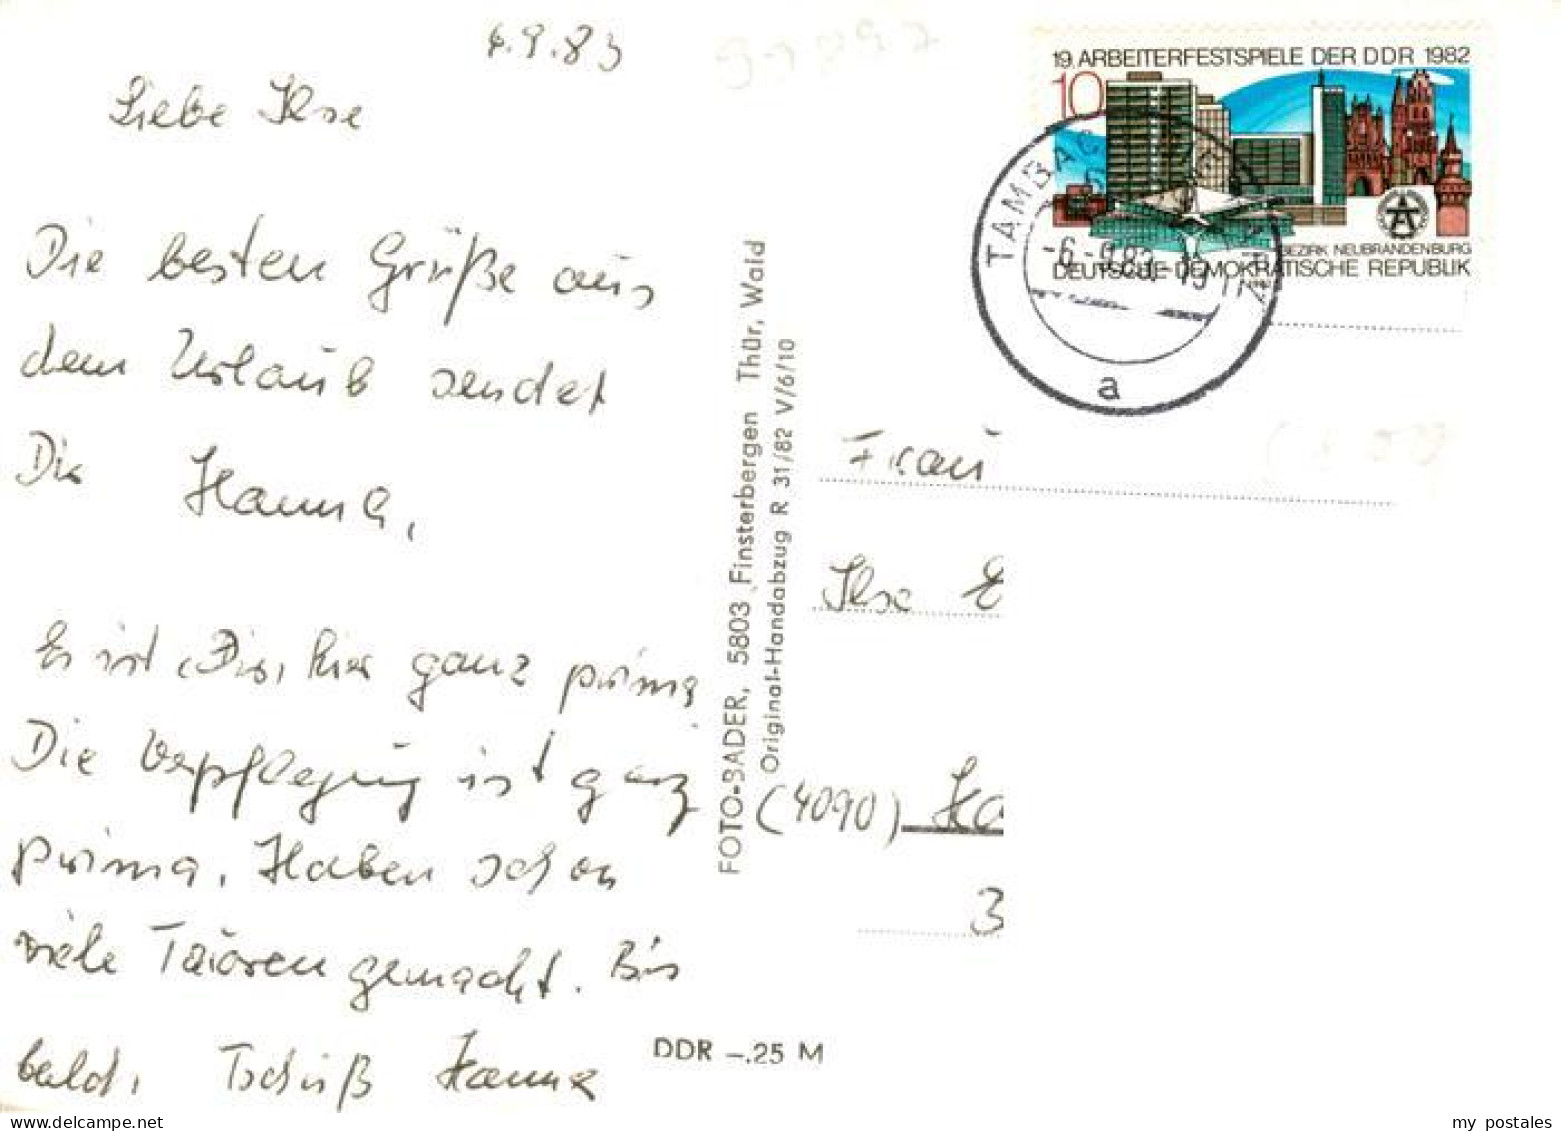 6.9.83
Liebe Ilse
Die besten Grüße aus
dem Urlaub sendet
Dir Hanna,
Es ist Dir, hier ganz prima
Die Verpflegung ist ganz
prima. Haben schon
viele Touren gemacht. Bis
bald, Tschüß Hanna
FOTO-BADER, 5803 Finsterbergen Thür, Wald
Original-Handabzug R 31/82 V/6/10
DDR –.25 M
19. ARBEITERFESTSPIELE DER DDR 1982
10
BEZIRK NEUBRANDENBURG
DEUTSCHE DEMOKRATISCHE REPUBLIK
1982
TAMBACH
-6.-9.83.-15
a
Frau
Ilse E
(4090) Ha
3
my postales